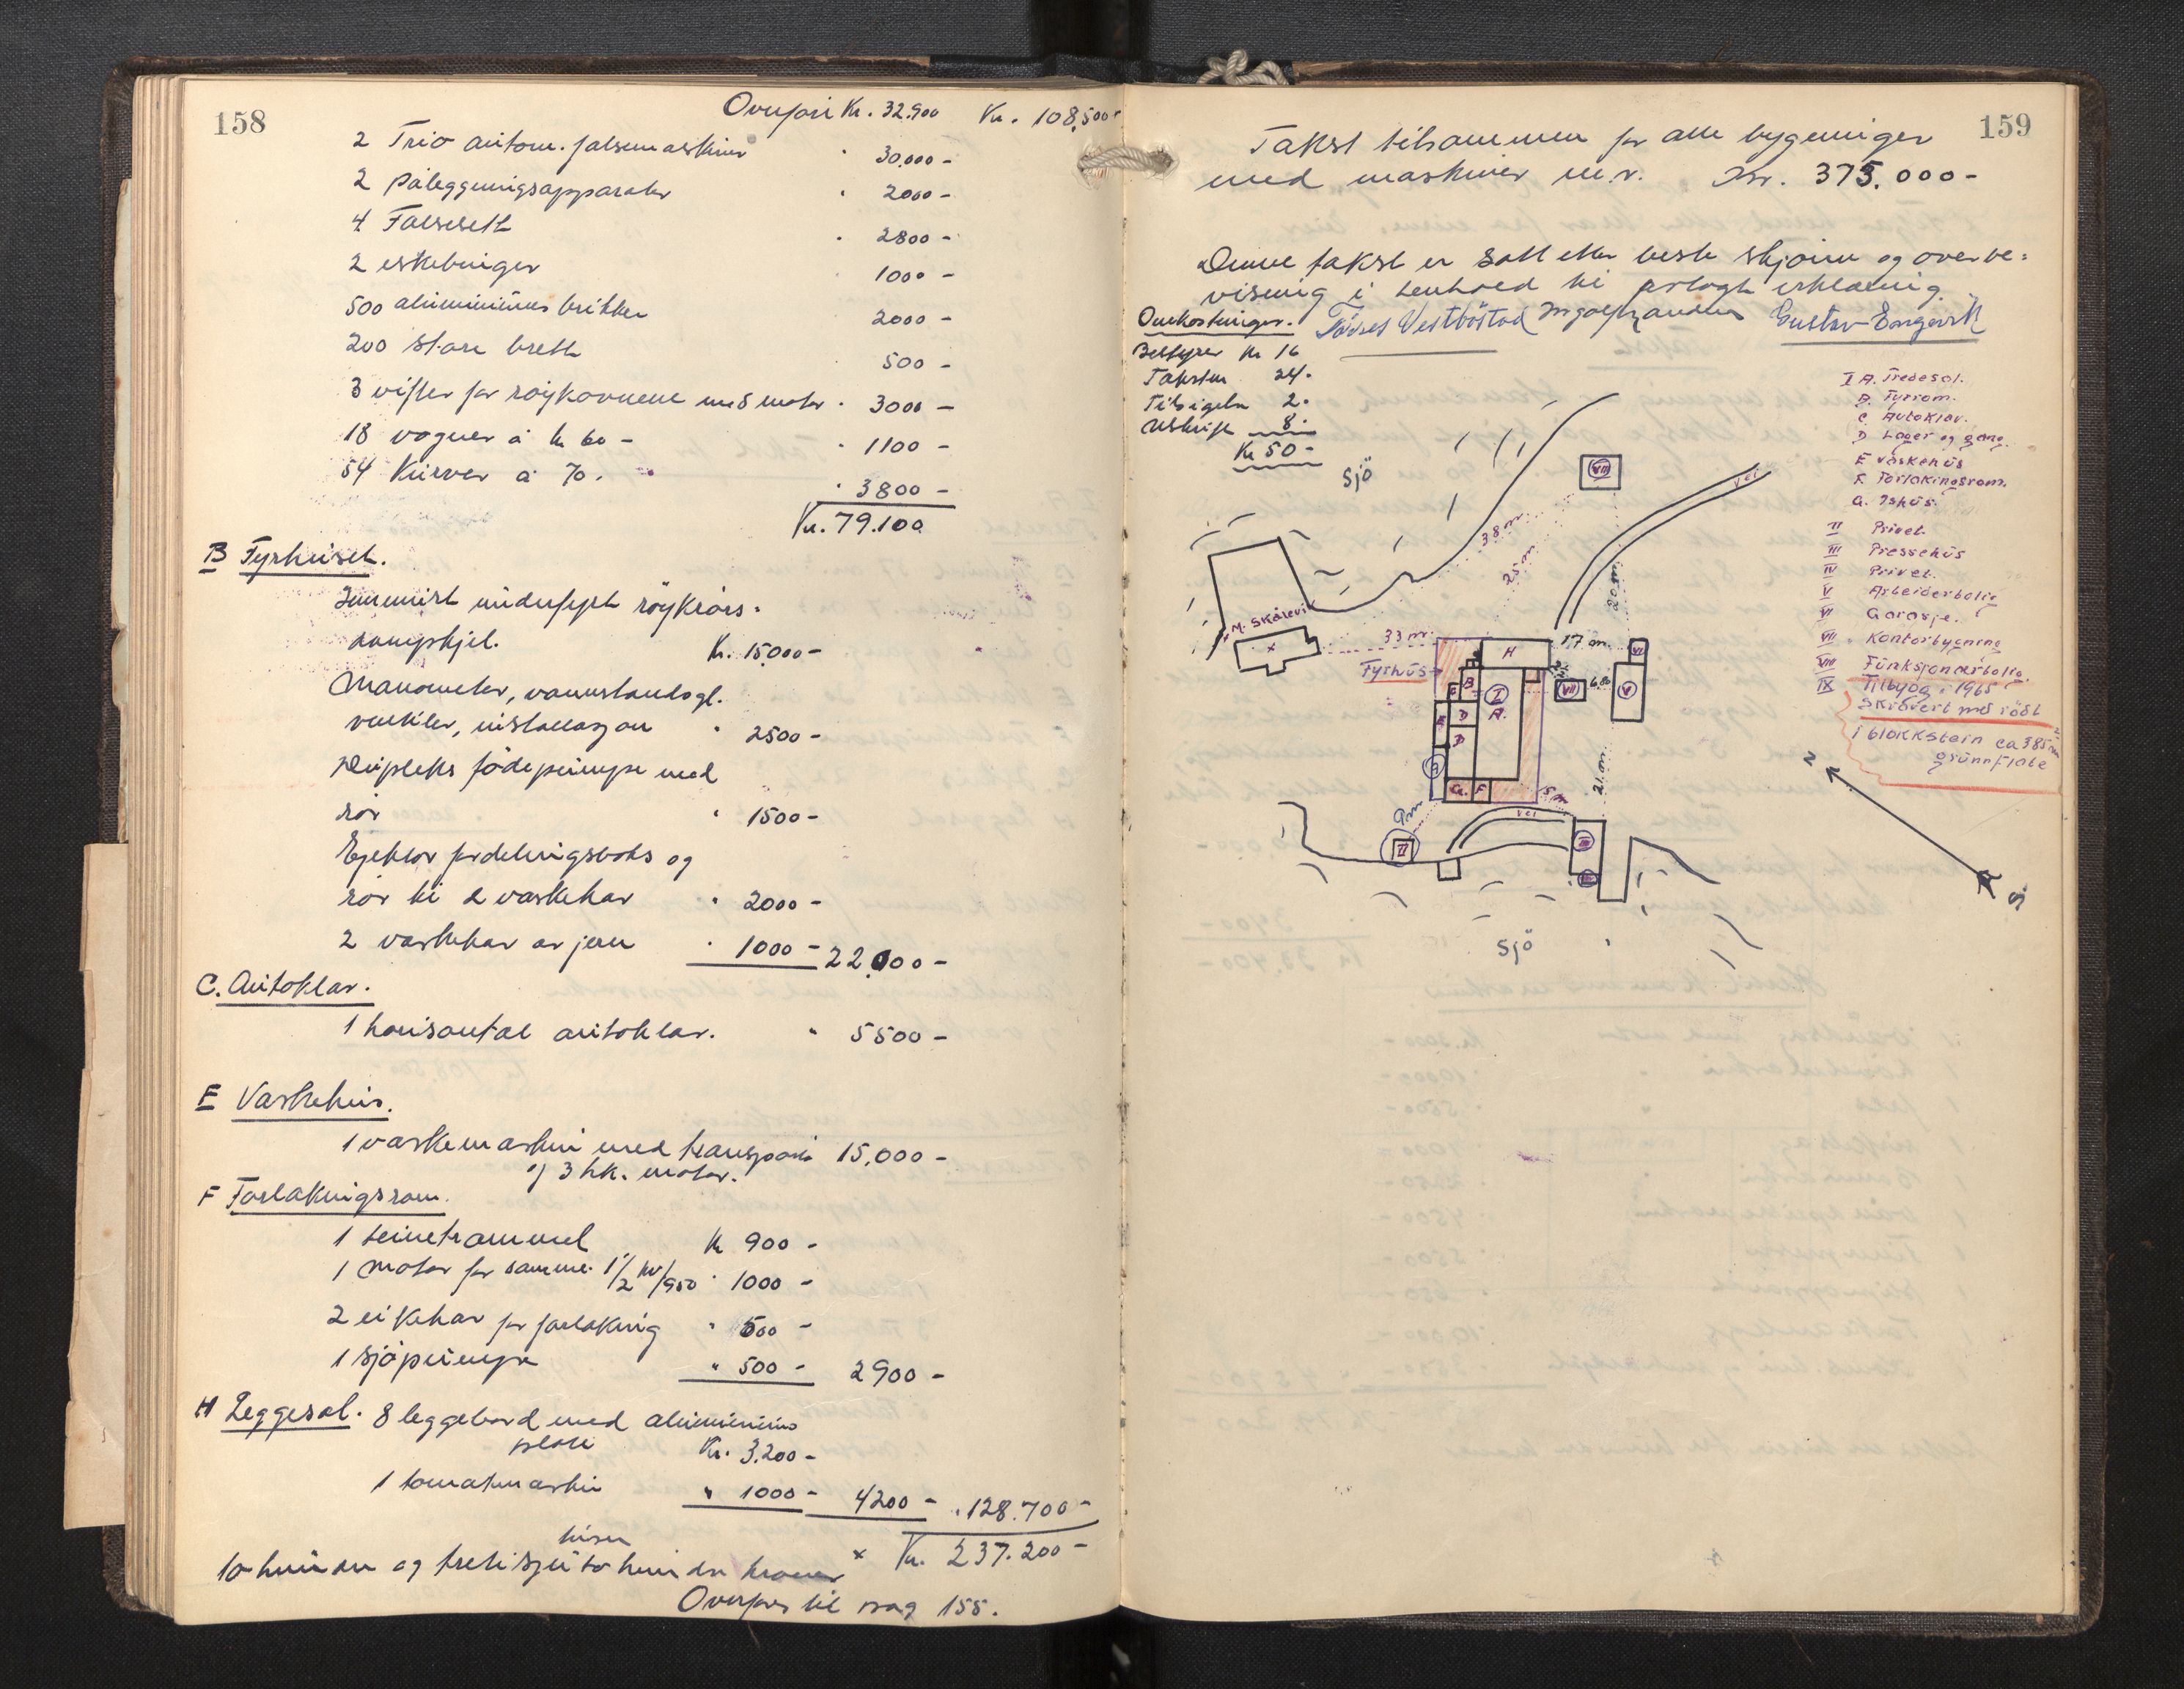 158
Overført Kr. 32.900 Kr. 108.500-
2 Trio autom. falsemaskiner " 30.000-
2 påleggningsapparater " 2000-
4 Falsesett " 2800-
2 eskebinger 1000-
500 aluminiums brikker 2000-
200 store brett 500-
3 vifter for röykovnene med motor " 3000-
18 vogner à kr 60- " 1100-
54 Kurver à 70. " 3800-
Kr. 79.100
B Fyrhuset.
Innmurt underfyrt röykrörs-
dampkjel. Kr. 15.000-
Manometer, vannstandsgl.
ventiler, installasjon " 2500-
Dupleks födepumpe med
rör " 1500-
Ejektor fordelingsboks og
rör til 2 vaskekar " 2000-
2 vaskekar av jern " 1000- 22.000-
C. Autoklav.
1 horisontal autoklav. " 5500-
E Vaskehus.
1 vaskemaskin med transportör 15.000-
1/ 3 hk. motor.
F Forlakningsrom.
1 seinetrommel Kr 900-
1 motor for samme 1 1/2 kv/950 " 1000-
2 eikekar for forlaking " 500-
1 sjöpumpe " 500- 2900-
H Leggesal. 8 leggebord med aluminiums
plate Kr. 3.200-
1 tomatmaskin " 1000- 4200- " 128.700-
Kr. 237.200-
tusen
to hundre og tretisju to hundre kroner x
Overføres til pag 155.
159
Takst tilsammen for alle bygninger
med maskiner m.v. Kr. 375.000-
Denne takst er satt etter beste skjönn og overbe-
visning i henhold til avlagt erklæring.
Omkostninger. Tövres Vestböstad Gustav Engevik
Bestyrer Kr 16
Takstm 24.
Tilsigeln 2.
Utskrift 8.
Kr 50-
I A. Tredesal.
B. Fyrrom.
C Autoklav.
D Lager og gang.
E Vaskehus
F. Forlakingsrom.
G. Ishus.
II Privet.
III Pressehus
IV Privet.
V Arbeiderbolig
VI Garasje.
VII Kontorbygning
VIII Funksjonærbolig.
IX Tilbygg i 1965
Skravert med rödt
i blokkstein ca 385 m²
grunnflate
Sjö
VIII
Vei
38 m.
25 m
20 m
M. Skålevik
x
33 m.
Fyrhus
H
17 m.
VI
B
C
I
A.
VII
6 m
V
E
D
D
G.
F
5 m
21 m
9 m
Vei
II
III
IV
N
S
Sjö